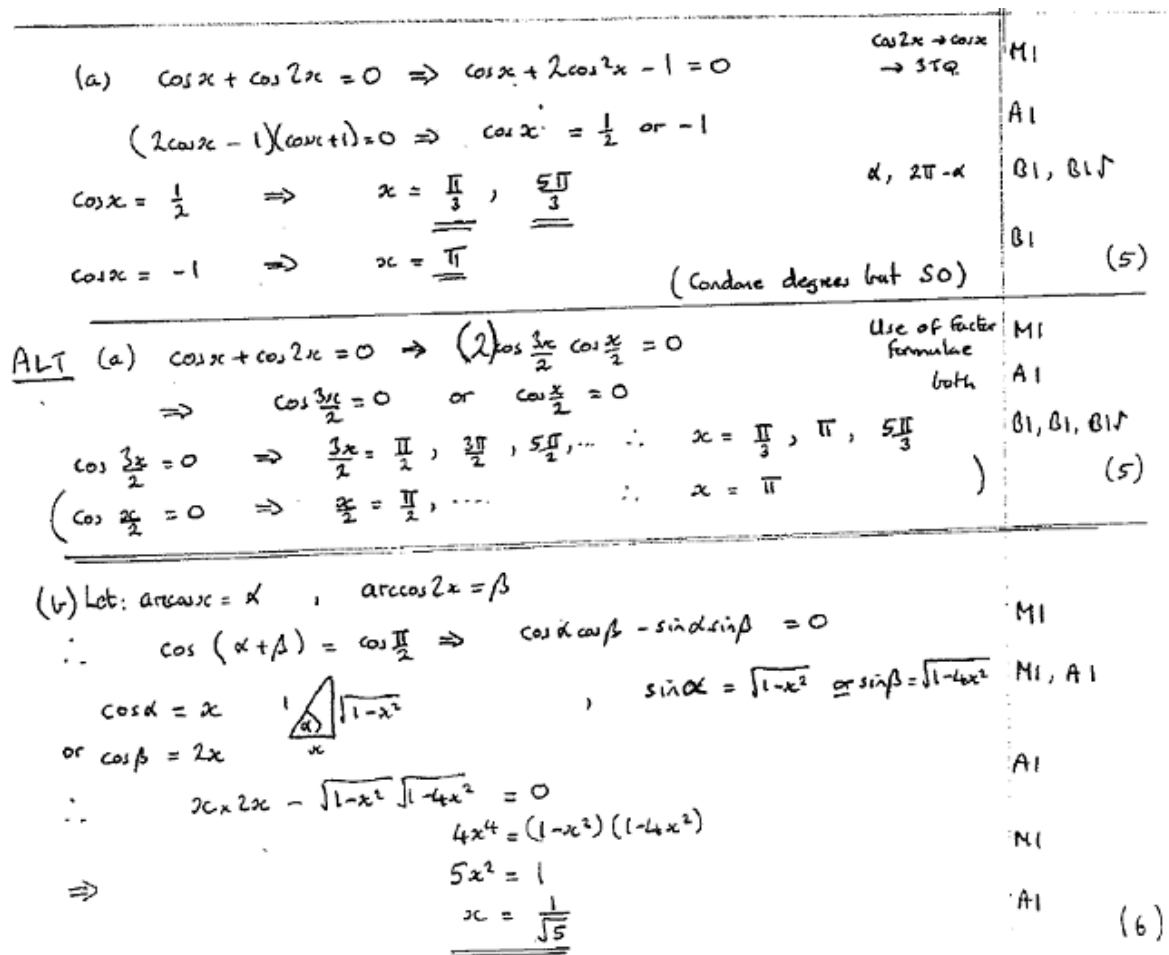 cos2x → cosx
(a) cosx + cos 2x = 0 ⇒ cosx + 2cos²x - 1 = 0 → 3TQ M1
(2cosx - 1)(cosx+1)=0 ⇒ cosx = 1/2 or -1 A1
cosx = 1/2 ⇒ x = π/3 , 5π/3 α, 2π-α B1, B1√
cosx = -1 ⇒ x = π B1
(Condone degrees but SO) (5)
ALT (a) cosx + cos 2x = 0 ⇒ (2)cos 3x/2 cos x/2 = 0 Use of factor formulae M1
⇒ cos 3x/2 = 0 or cos x/2 = 0 both A1
cos 3x/2 = 0 ⇒ 3x/2 = π/2 , 3π/2 , 5π/2 , ... ∴ x = π/3 , π , 5π/3 B1, B1, B1√
(cos x/2 = 0 ⇒ x/2 = π/2 , .... ∴ x = π ) (5)
(b) Let: arccosx = α , arccos2x = β
∴ cos (α+β) = cos π/2 ⇒ cosαcosβ - sinαsinβ = 0 M1
cosα = x 1 α √(1-x²) x , sinα = √(1-x²) or sinβ = √(1-4x²) M1, A1
or cosβ = 2x
∴ x × 2x - √(1-x²) √(1-4x²) = 0 A1
4x⁴ = (1-x²)(1-4x²) M1
⇒ 5x² = 1
x = 1/√5 A1 (6)